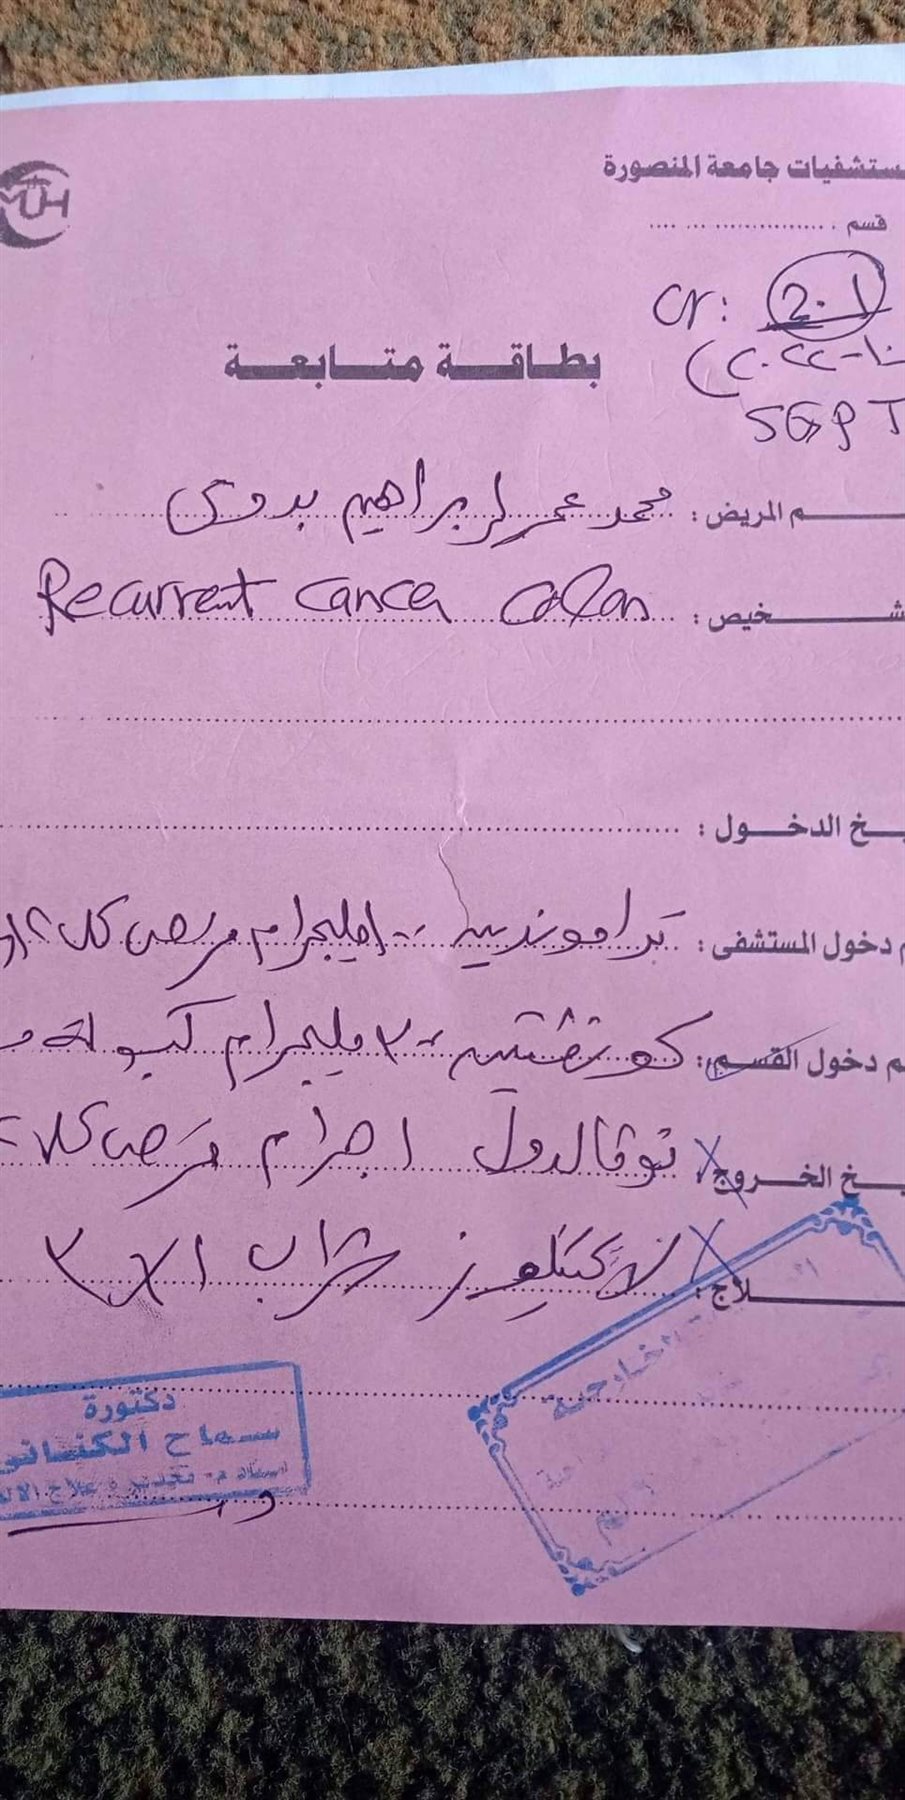 مستشفيات جامعة المنصورة
MUH
قسم
Cr: 2.1
(٢٠٢٢-١٠
SGPT
بطاقة متابعة
م المريض : محمد عمر ابراهيم بدوى
شخيص : Recurrent Cancer Colon
يخ الدخول :
م دخول المستشفى : تراموندين ١٠٠ مليجرام قرص كل ١٢
م دخول القسم : ٣٠٠ مليجرام كبسولة
يخ الخروج : توفالدول ١ جرام قرص كل
لاج : لاكتيلوز شراب ١ × ٣
دكتورة
سماح الكنانى
استاذ م. تخدير و علاج الالم